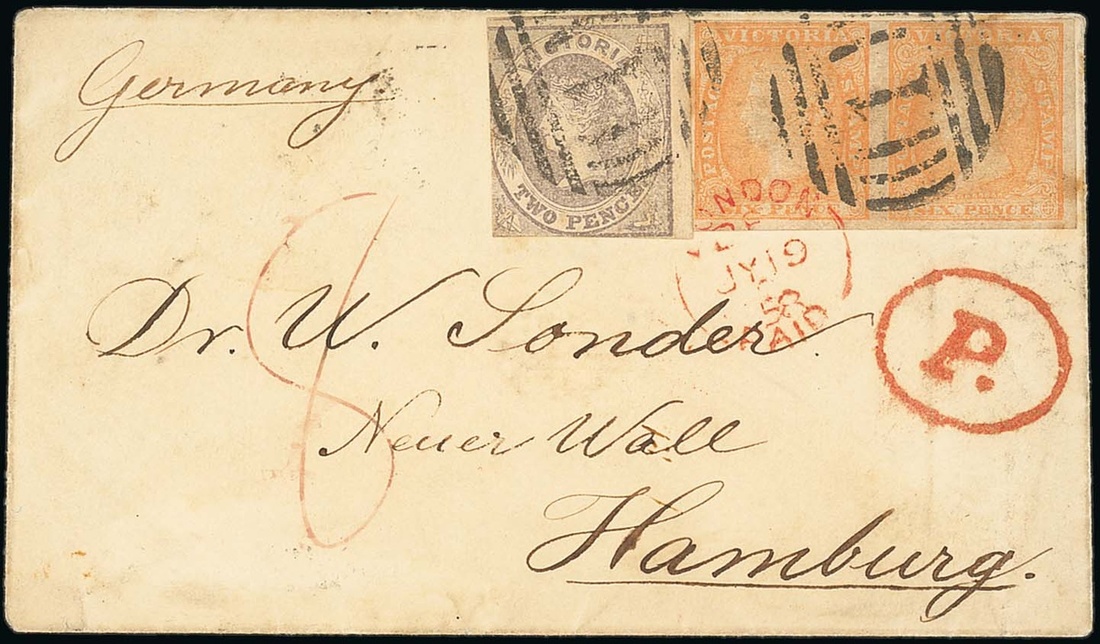 Germany
VICTORIA
TWO PENCE
VICTORIA
POSTAGE STAMP
SIX PENCE
VICTORIA
STAMP
SIX PENCE
1
1
LONDON
JY 19
58
PAID
P.
8
Dr. W. Sonder.
Neuer Wall
Hamburg.